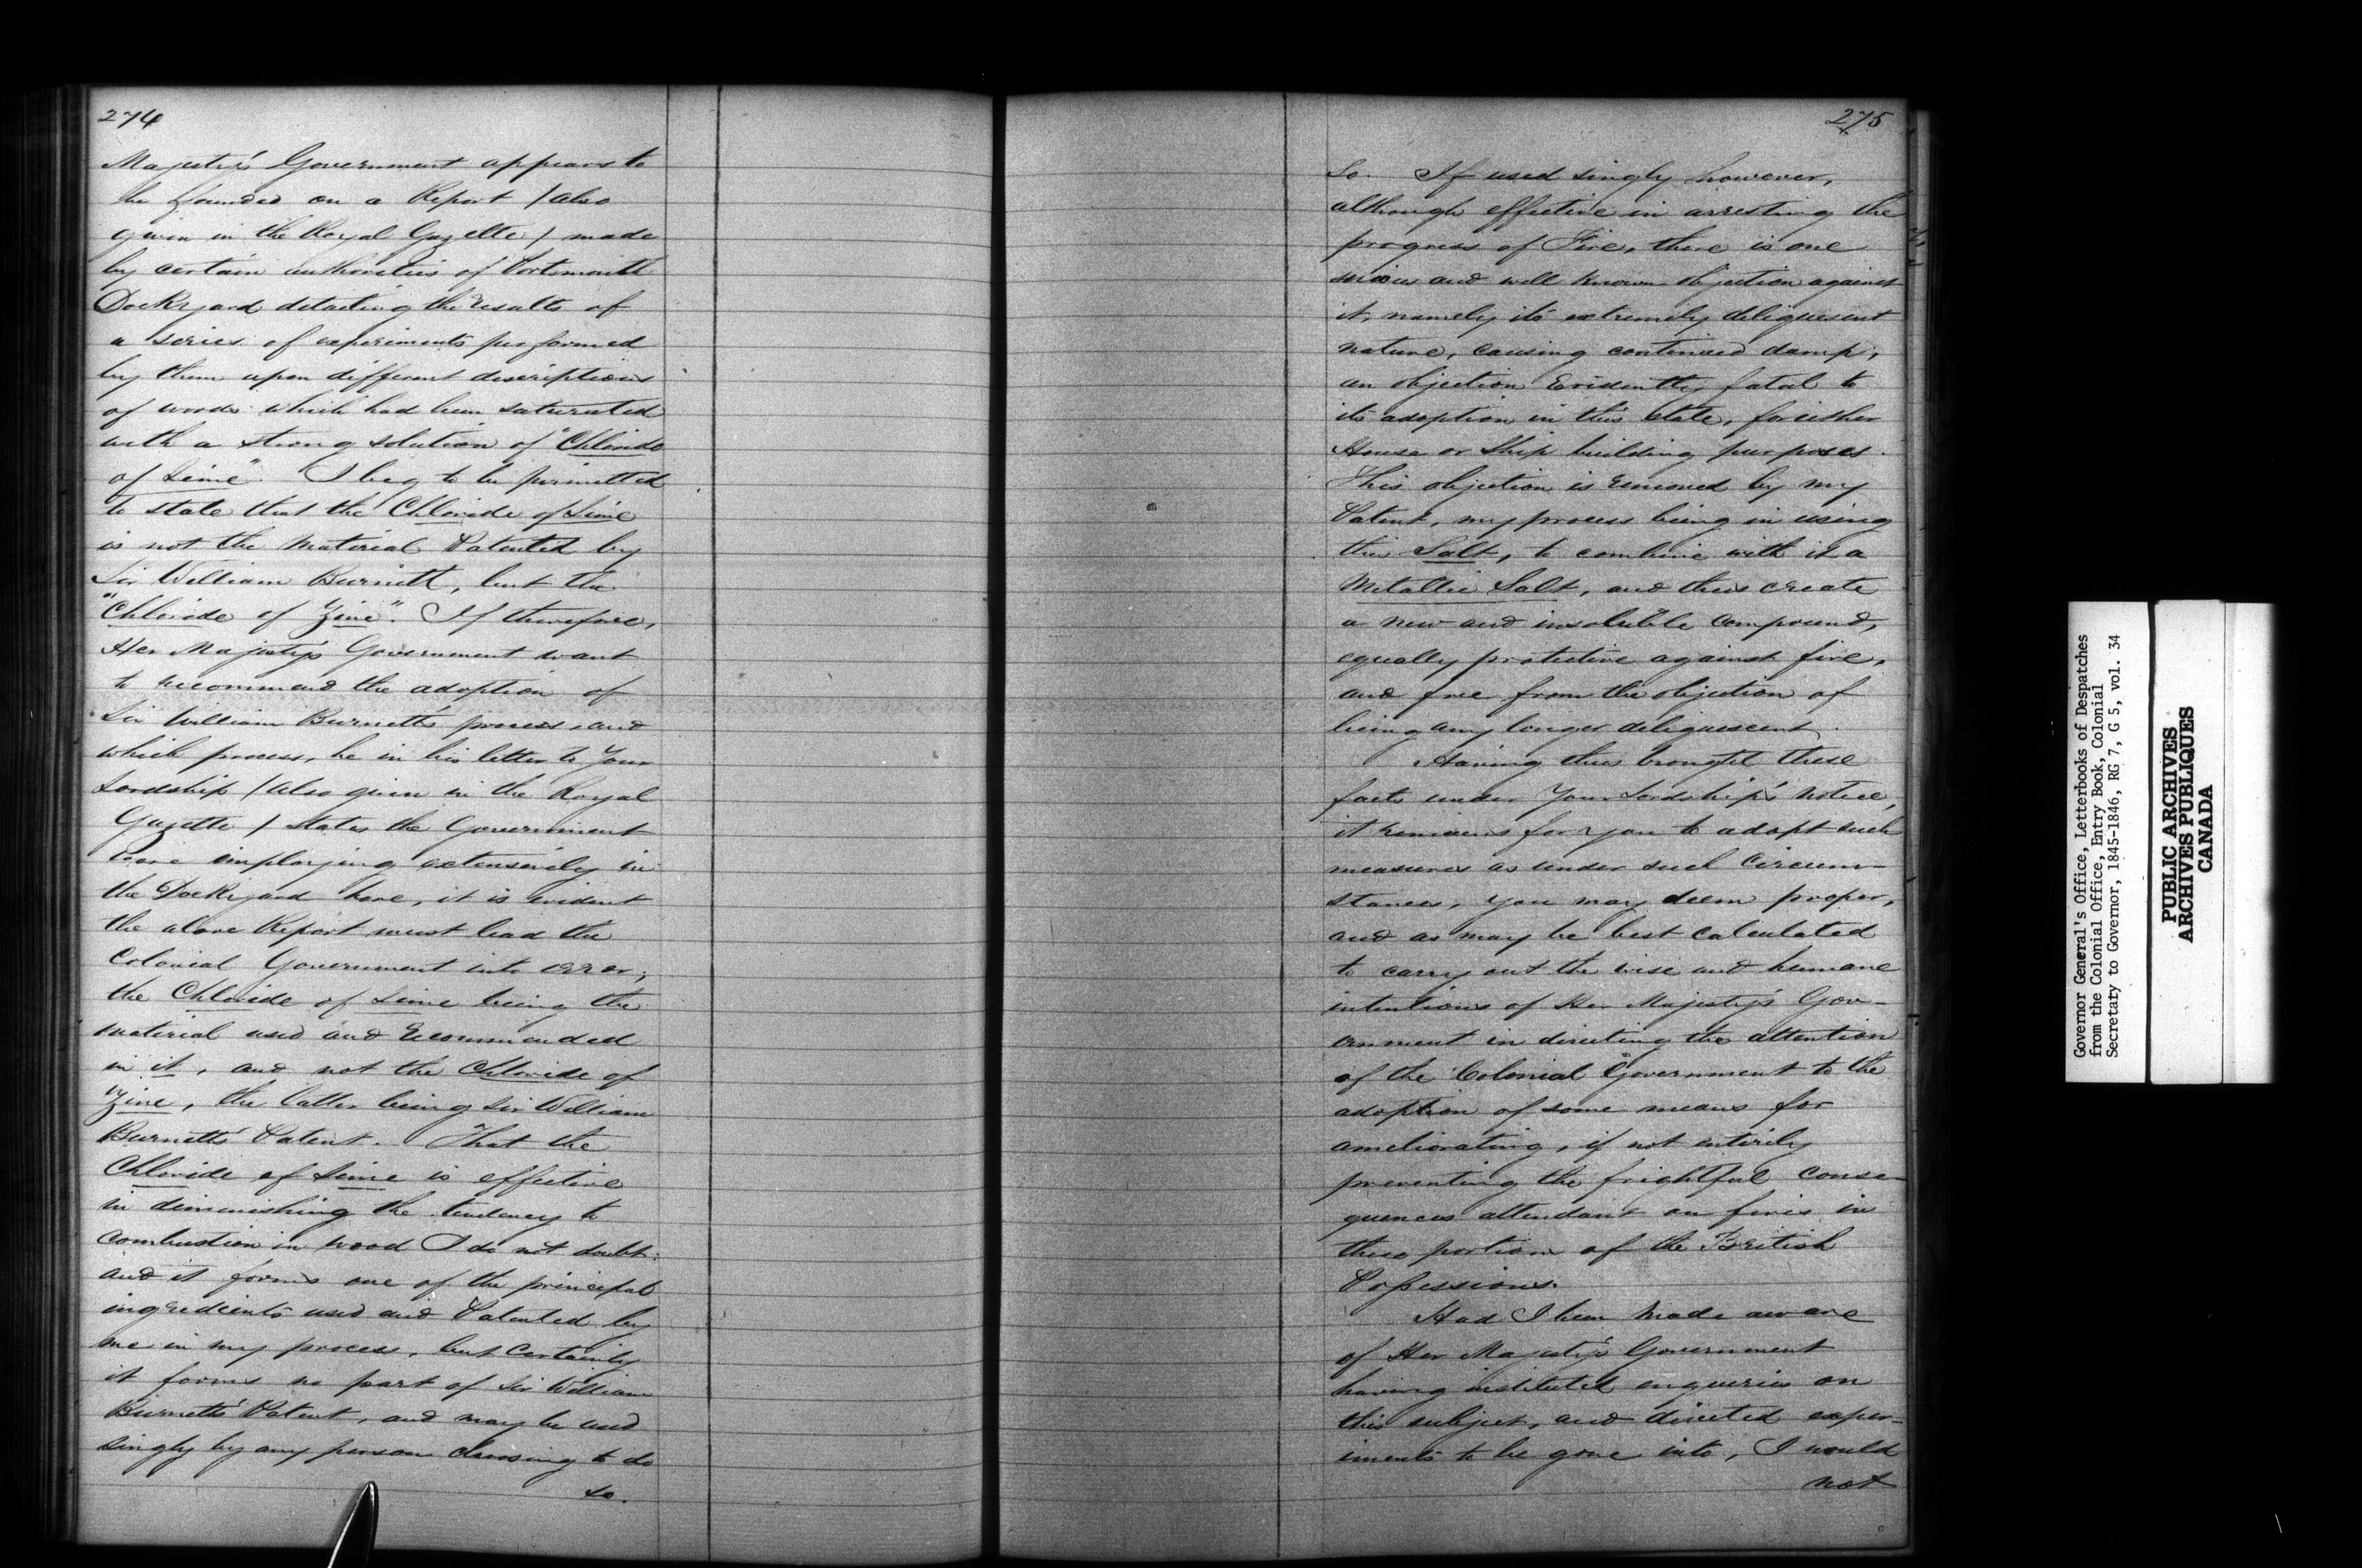 274
Majesty's Government appears to
be founded on a Report / also
given in the Royal Gazette / made
by certain authorities of Portsmouth
Dockyard detailing the results of
a series of experiments performed
by them upon different descriptions
of woods which had been saturated
with a strong solution of "Chloride
of Lime". I beg to be permitted
to state that the Chloride of Lime
is not the material Patented by
Sir William Burnett, but the
"Chloride of Zinc". If therefore,
Her Majesty's Government want
to recommend the adoption of
Sir William Burnett's process, and
which process, he in his letter to Your
Lordship / also given in the Royal
Gazette / states the Government
were employing extensively in
the Dockyard here, it is evident
the above Report must lead the
Colonial Government into error;
the Chloride of Lime being the
material used and recommended
in it, and not the Chloride of
Zinc, the latter being Sir William
Burnetts' Patent. That the
Chloride of Lime is effective
in diminishing the tendency to
combustion in wood I do not doubt:
and it forms one of the principal
ingredients used and Patented by
me in my process, but certainly
it forms no part of Sir William
Burnetts' Patent, and may be used
singly by any person choosing to do
so.
275
so. If used singly however,
although effective in arresting the
progress of Fire, there is one
serious and well known objection against
it, namely its extremely deliquescent
nature, causing continued damp,
an objection evidently fatal to
its adoption in this state, for either
House or Ship building purposes.
This objection is removed by my
Patent, my process being in using
this Salt, to combine with it a
Metallic Salt, and thus create
a new and insoluble compound,
equally protective against fire,
and free from the objection of
being any longer deliquescent.
Having thus brought these
facts under Your Lordship's notice,
it remains for you to adopt such
measures as under such circum-
stances, you may deem proper,
and as may be best calculated
to carry out the wise and humane
intentions of Her Majesty's Gov-
ernment in directing the attention
of the Colonial Government to the
adoption of some means for
ameliorating, if not entirely
preventing the frightful conse-
quences attendant on fires in
these portions of the British
Possessions.
Had I been made aware
of Her Majesty's Government
having instituted enquiries on
this subject, and directed exper-
iments to be gone into, I would
not
Governor General's Office, Letterbooks of Despatches
from the Colonial Office, Entry Book, Colonial
Secretaty to Governor, 1845-1846, RG 7, G 5, vol. 34
PUBLIC ARCHIVES
ARCHIVES PUBLIQUES
CANADA